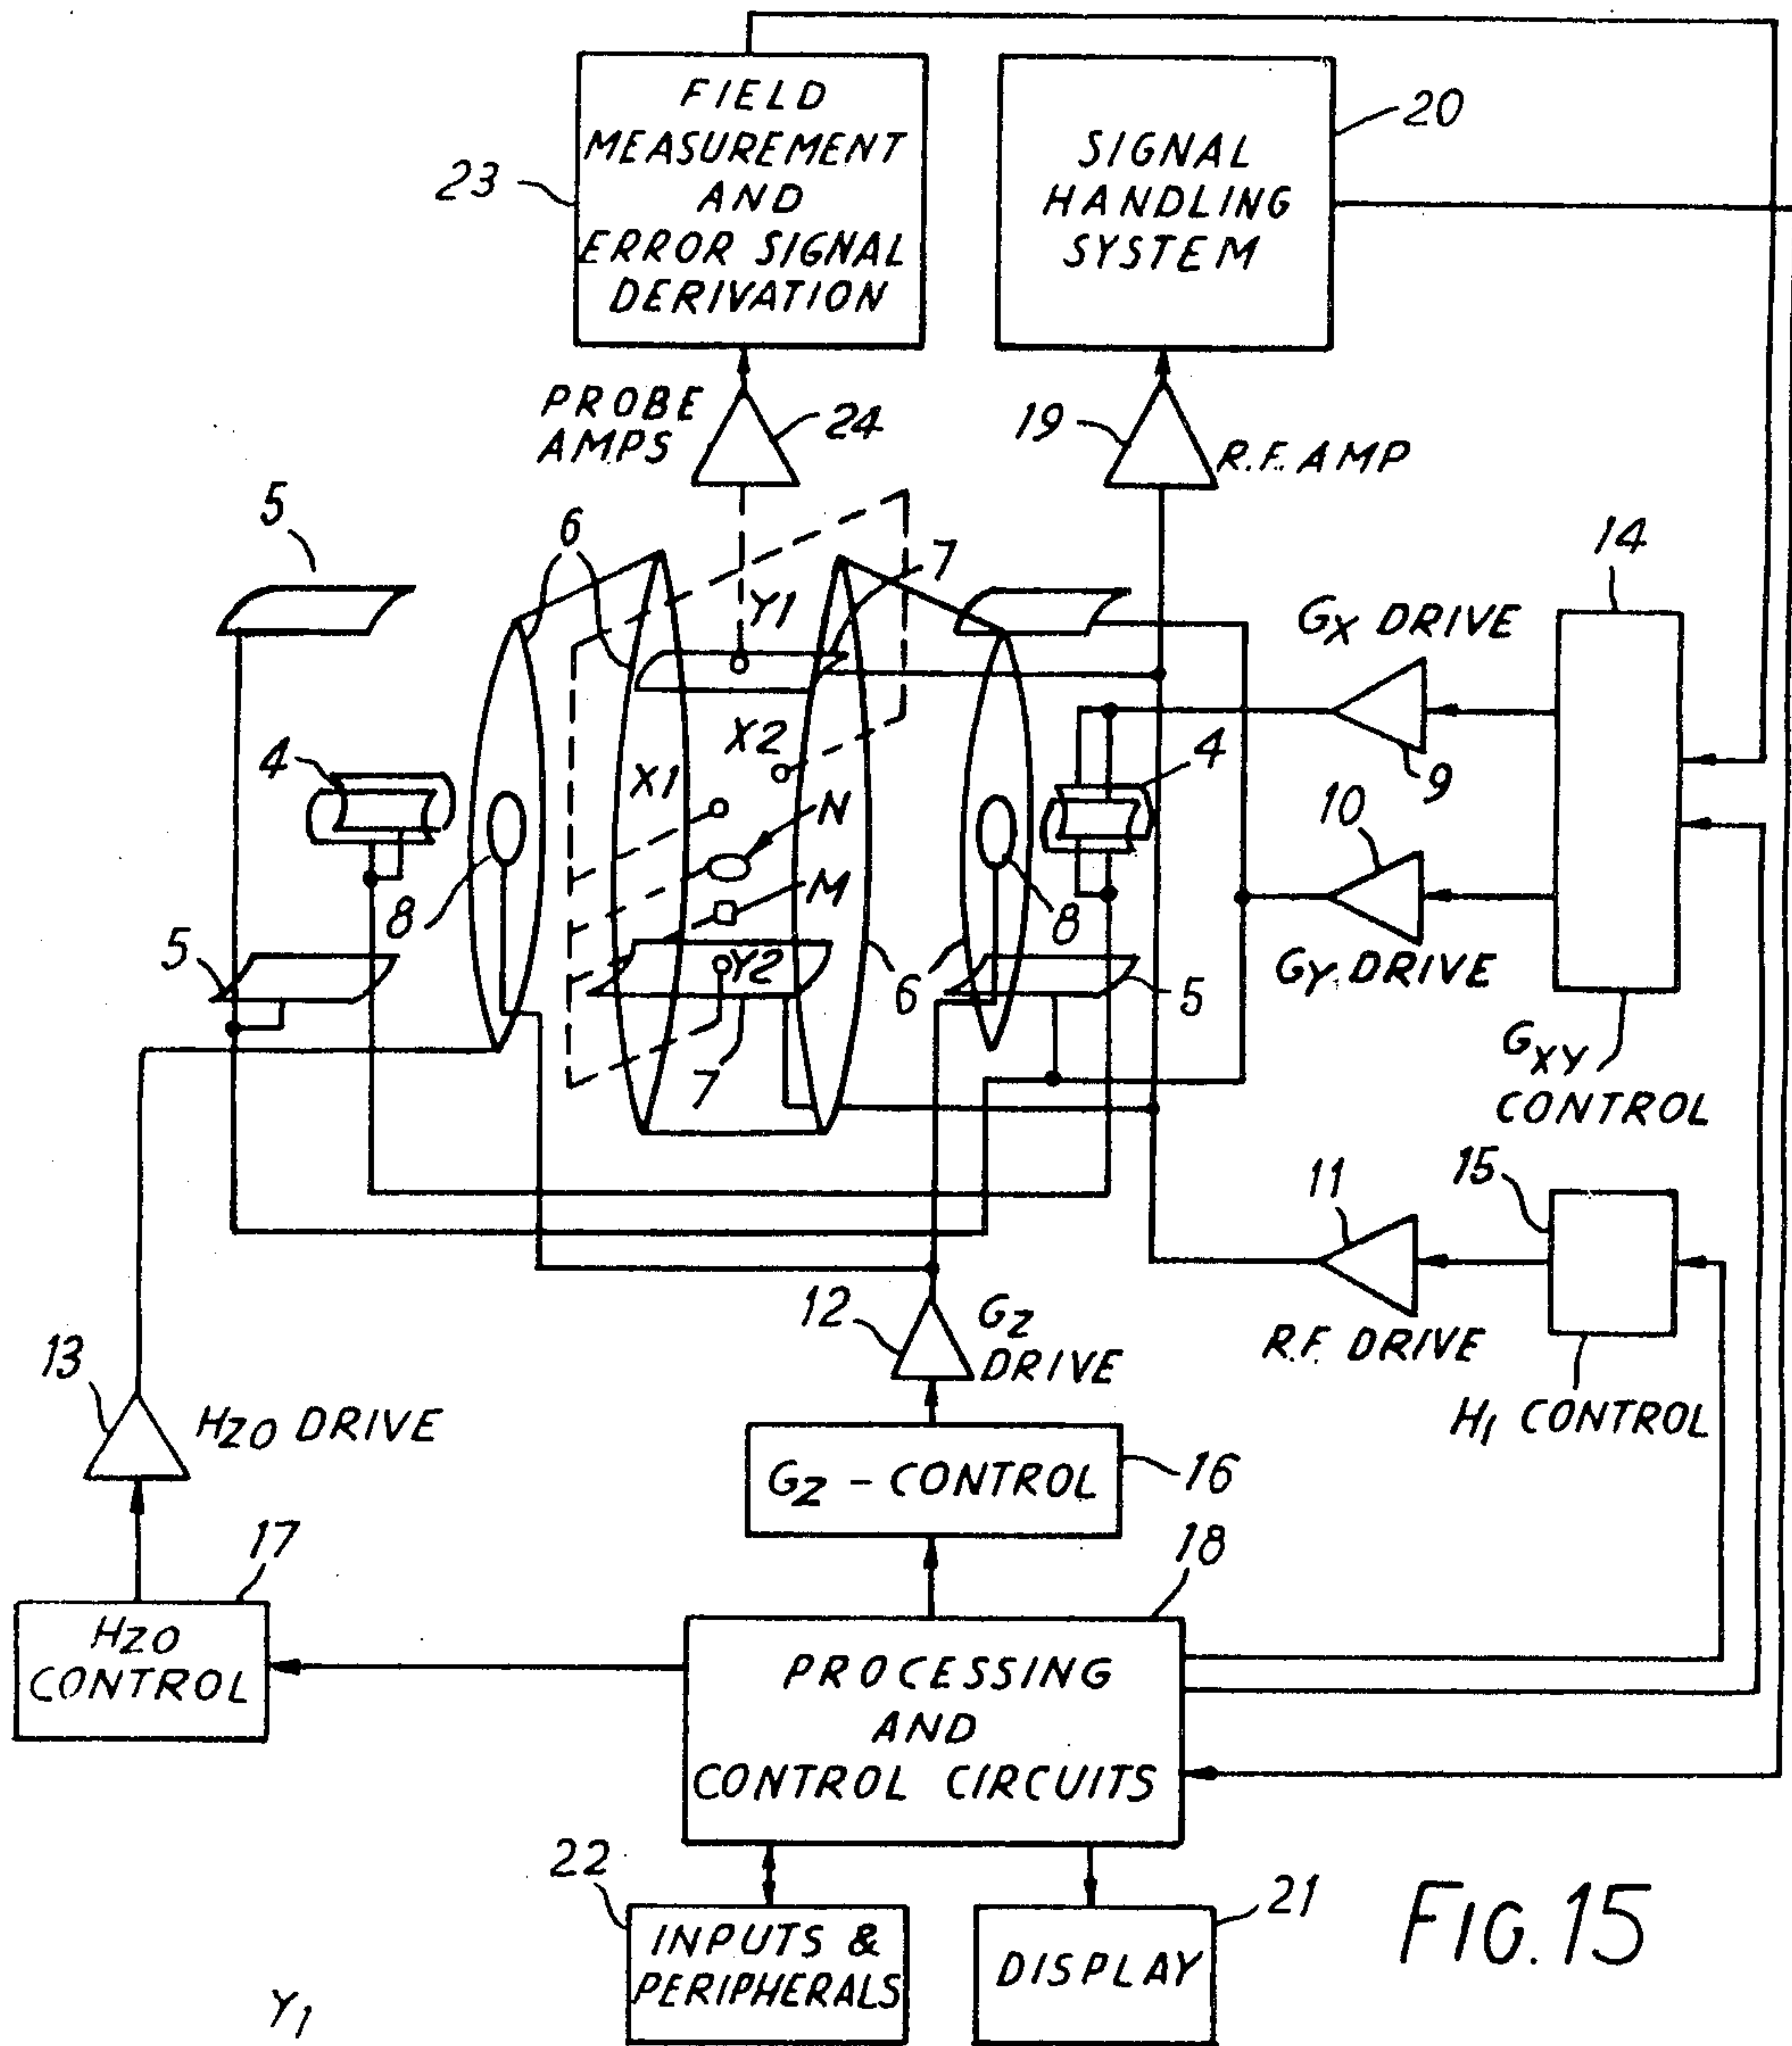 FIELD
MEASUREMENT
AND
ERROR SIGNAL
DERIVATION
23
SIGNAL
HANDLING
SYSTEM
20
PROBE
AMPS
24
19
R.F. AMP
5
6
7
14
Y1
GX DRIVE
X2
4
4
X1
9
N
10
M
8
8
5
Y2
6
5
GY DRIVE
7
GXY
CONTROL
15
11
12
GZ
DRIVE
R.F. DRIVE
13
HZO DRIVE
H1 CONTROL
GZ - CONTROL
16
17
18
HZO
CONTROL
PROCESSING
AND
CONTROL CIRCUITS
22
21
INPUTS &
PERIPHERALS
DISPLAY
FIG. 15
Y1